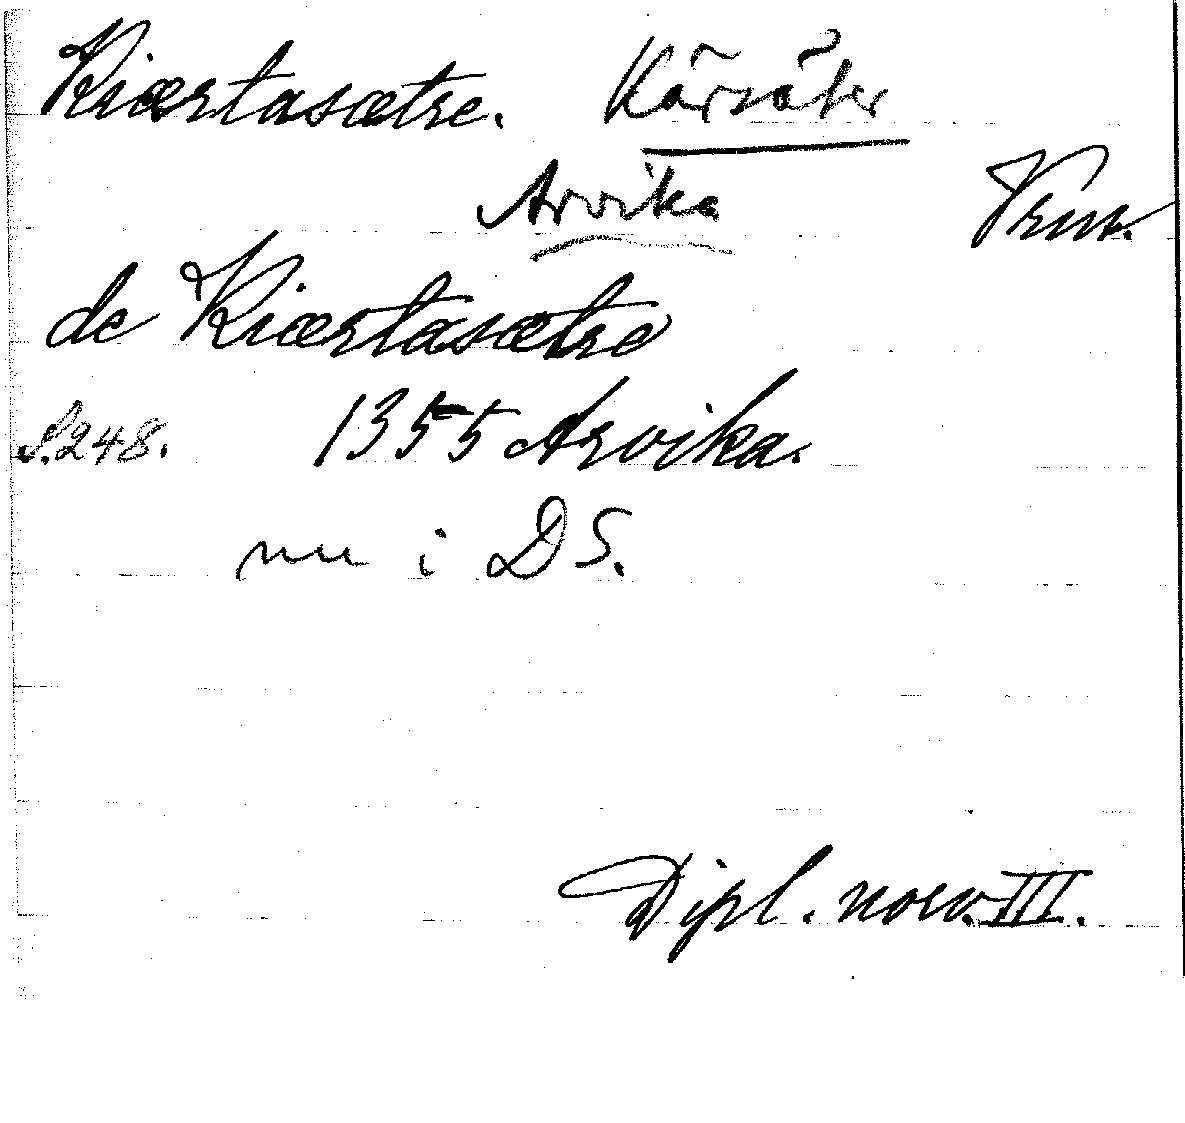 Kiærtasætre. Kärsäter
Arvika
Vrm.
de Kiærtasætre
S. 248. 1355 Arvika.
nu i DS.
Dipl. norv. III.